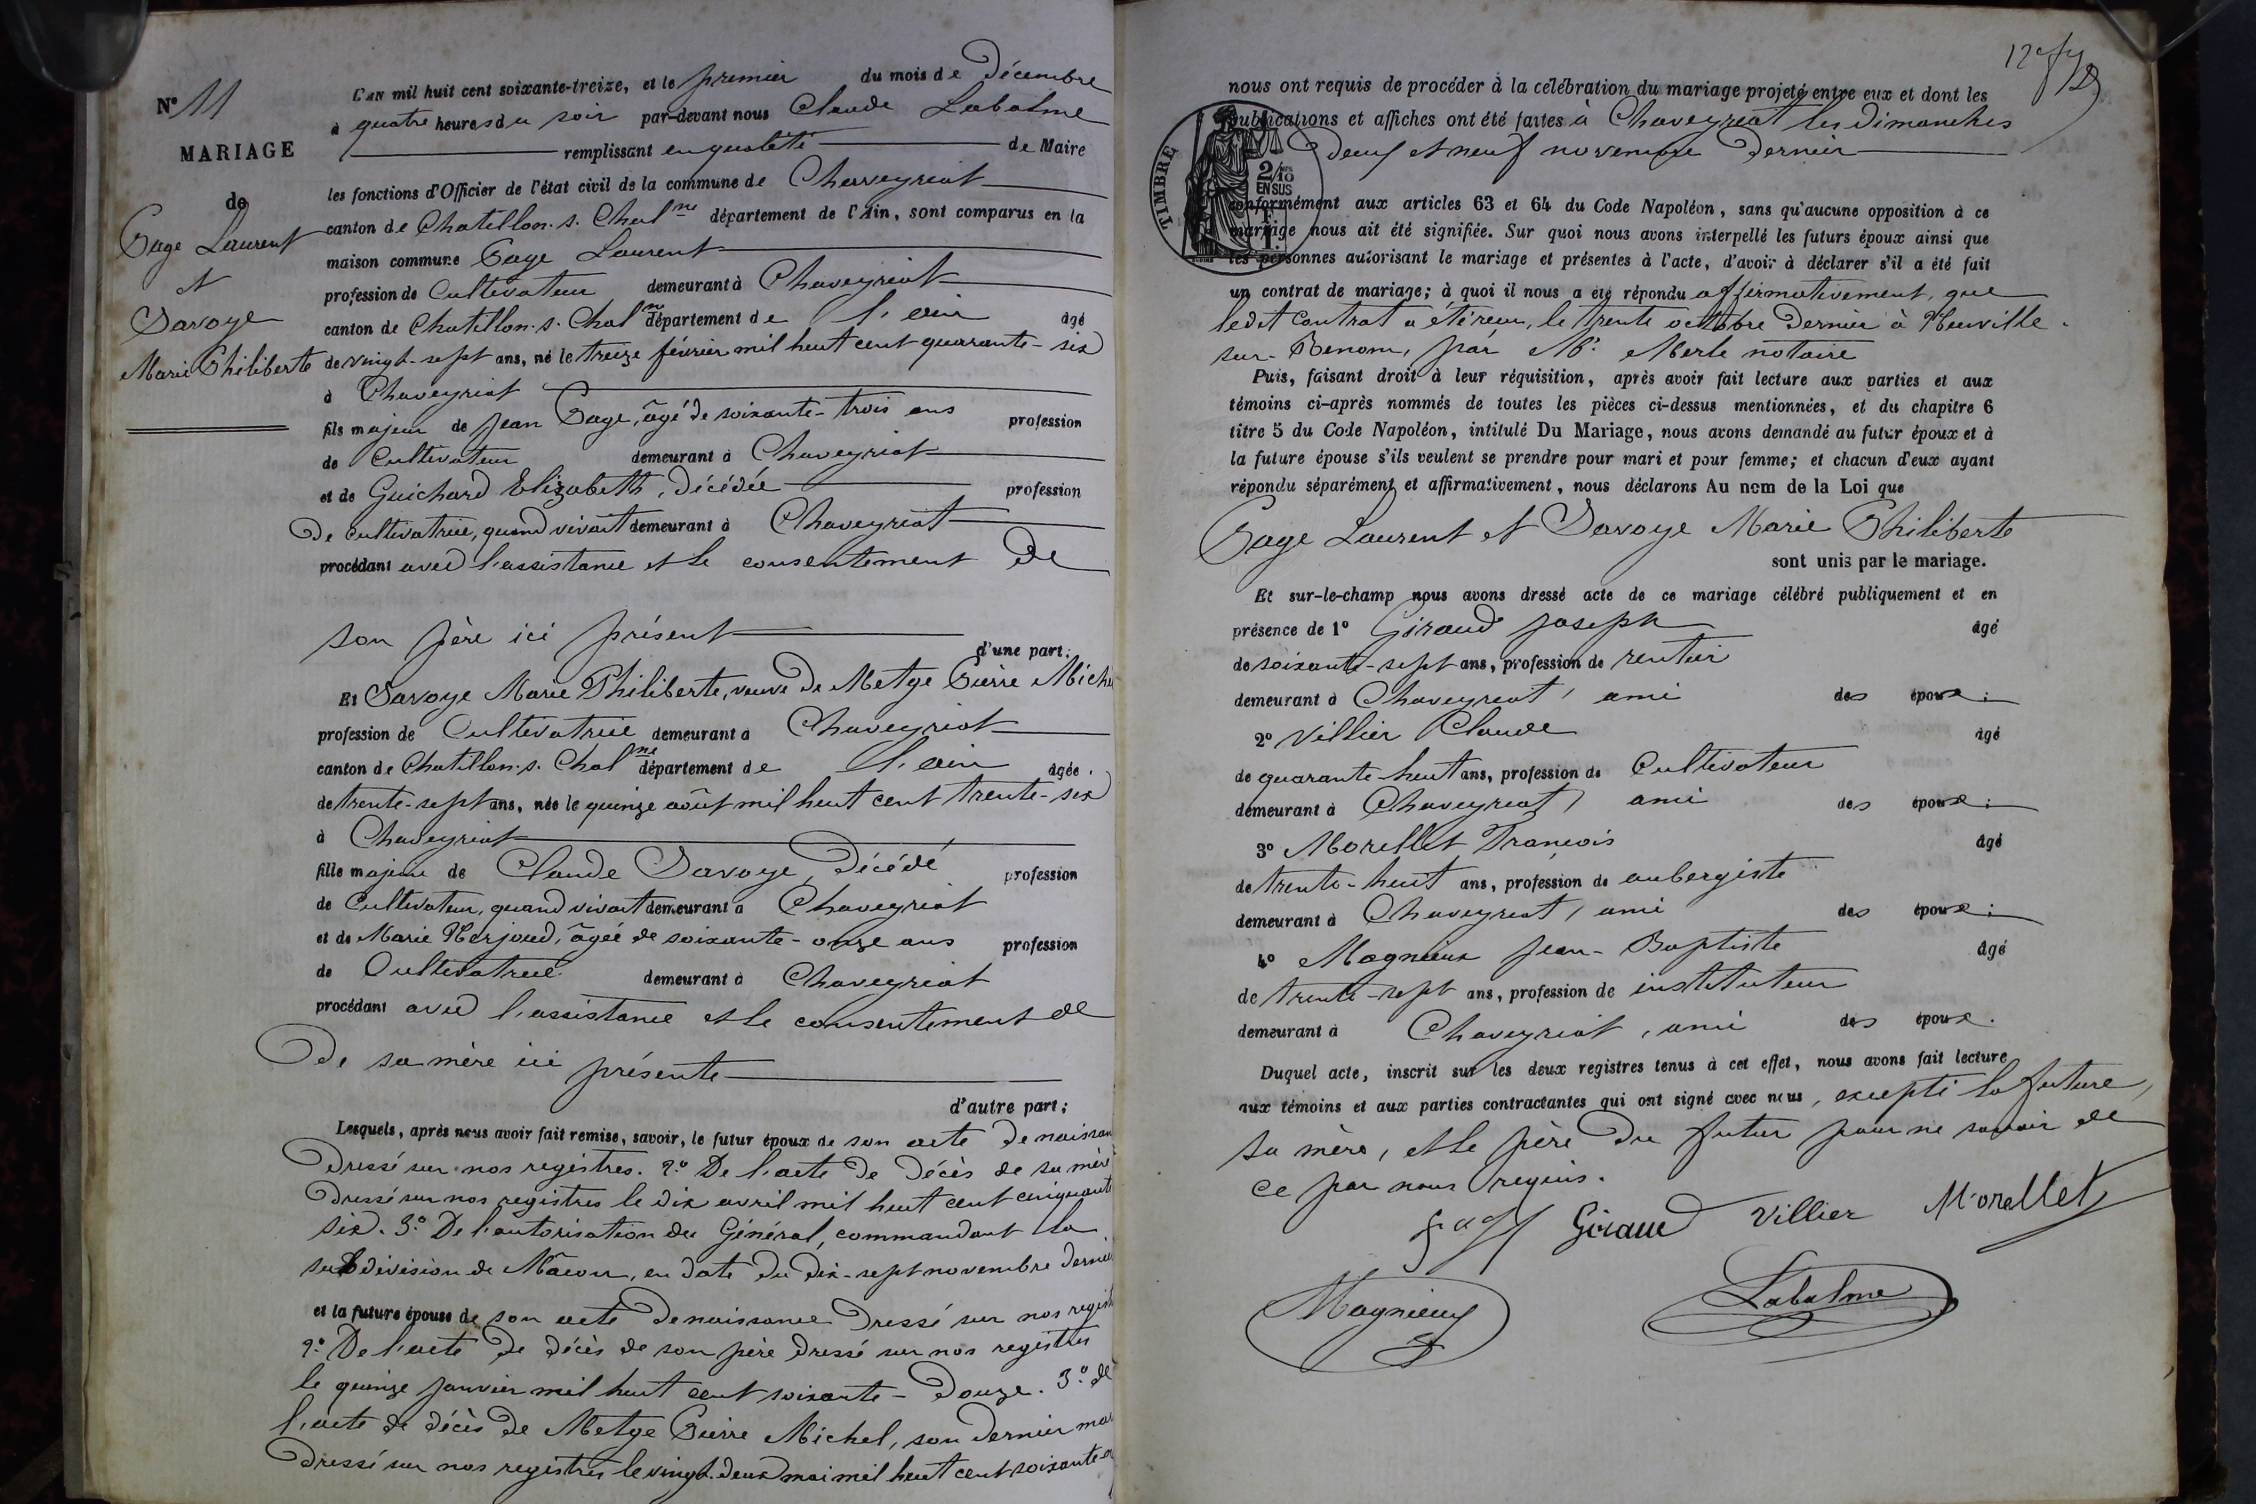 N° 11
MARIAGE
de
Page Laurent
et
Savoye
Marie Philiberte
L'AN mil huit cent soixante-treize, et le premier du mois de décembre
à quatre heures du soir par-devant nous Claude Labalme
remplissant en qualité de Maire
les fonctions d'Officier de l'état civil de la commune de Chaveyriat
canton de Chatillon.s.Chalne département de l'Ain, sont comparus en la
maison commune Page Laurent
profession de Cultivateur demeurant à Chaveyriat
canton de Chatillon.s.Chalne département de l'ain âgé
de vingt-sept ans, né le treize février mil huit cent quarante-six
à Chaveyriat
fils majeur de Jean Page, âgé de soixante-trois ans profession
de Cultivateur demeurant à Chaveyriat
et de Guichard Elizabeth, décédée profession
de Cultivatrice, quand vivait demeurant à Chaveyriat
procédant avec l'assistance et le consentement de
son père ici présent
d'une part;
Et Savoye Marie Philiberte, veuve de Metge Pierre Miche
profession de Cultivatrice demeurant à Chaveyriat
canton de Chatillon.s.Chalne département de l'ain âgée
de trente-sept ans, née le quinze août mil huit cent trente-six
à Chaveyriat
fille majeure de Claude Savoye, décédé profession
de Cultivateur, quand vivait demeurant à Chaveyriat
et de Marie Herjoud, âgée de soixante-onze ans profession
de Cultivatrice demeurant à Chaveyriat
procédant avec l'assistance et le consentement de
de sa mère ici présente
d'autre part;
Lesquels, après nous avoir fait remise, savoir, le futur époux de son acte de naissan
dressé sur nos registres. 2.° De l'acte de décès de sa mère
dressé sur nos registres le dix avril mil huit cent cinquante
six. 3.° De l'autorisation du Général, commandant la
subdivision de Mâcon, en date du dix-sept novembre dernier
et la future épouse de son acte de naissance dressé sur nos regist
2.° De l'acte de décès de son père dressé sur nos registres
le quinze janvier mil huit cent soixante-douze. 3.° de
l'acte de décès de Metge Pierre Michel, son dernier mar
dressé sur nos registres le vingt-deux mai mil huit cent soixante
nous ont requis de procéder à la célébration du mariage projeté entre eux et dont les
publications et affiches ont été faites à Chaveyriat les Dimanches
deux et neuf novembre dernier
TIMBRE
2/10
EN SUS
conformément aux articles 63 et 64 du Code Napoléon, sans qu'aucune opposition à ce
mariage nous ait été signifiée. Sur quoi nous avons interpellé les futurs époux ainsi que
les personnes autorisant le mariage et présentes à l'acte, d'avoir à déclarer s'il a été fait
un contrat de mariage; à quoi il nous a été répondu affirmativement, que
ledit contrat a été reçu, le trente octobre dernier à Neuville-
sur-Renom, par Me. Merle notaire
Puis, faisant droit à leur réquisition, après avoir fait lecture aux parties et aux
témoins ci-après nommés de toutes les pièces ci-dessus mentionnées, et du chapitre 6
titre 5 du Code Napoléon, intitulé Du Mariage, nous avons demandé au futur époux et à
la future épouse s'ils veulent se prendre pour mari et pour femme; et chacun d'eux ayant
répondu séparément et affirmativement, nous déclarons Au nom de la Loi que
Page Laurent et Savoye Marie Philiberte
sont unis par le mariage.
Et sur-le-champ nous avons dressé acte de ce mariage célébré publiquement et en
présence de 1° Giraud Joseph âgé
de soixante-sept ans, profession de rentier
demeurant à Chaveyriat, ami des époux;
2° Villier Claude âgé
de quarante-huit ans, profession de Cultivateur
demeurant à Chaveyriat, ami des époux;
3° Morellet François âgé
de trente-huit ans, profession de aubergiste
demeurant à Chaveyriat, ami des époux;
4° Magnieux Jean-Baptiste âgé
de trente-sept ans, profession de instituteur
demeurant à Chaveyriat, ami des époux.
Duquel acte, inscrit sur les deux registres tenus à cet effet, nous avons fait lecture
aux témoins et aux parties contractantes qui ont signé avec nous, excepté la future,
sa mère, et le père du futur pour ne savoir de
ce par nous requis.
Giraud Villier Morellet
Magnieux Labalme